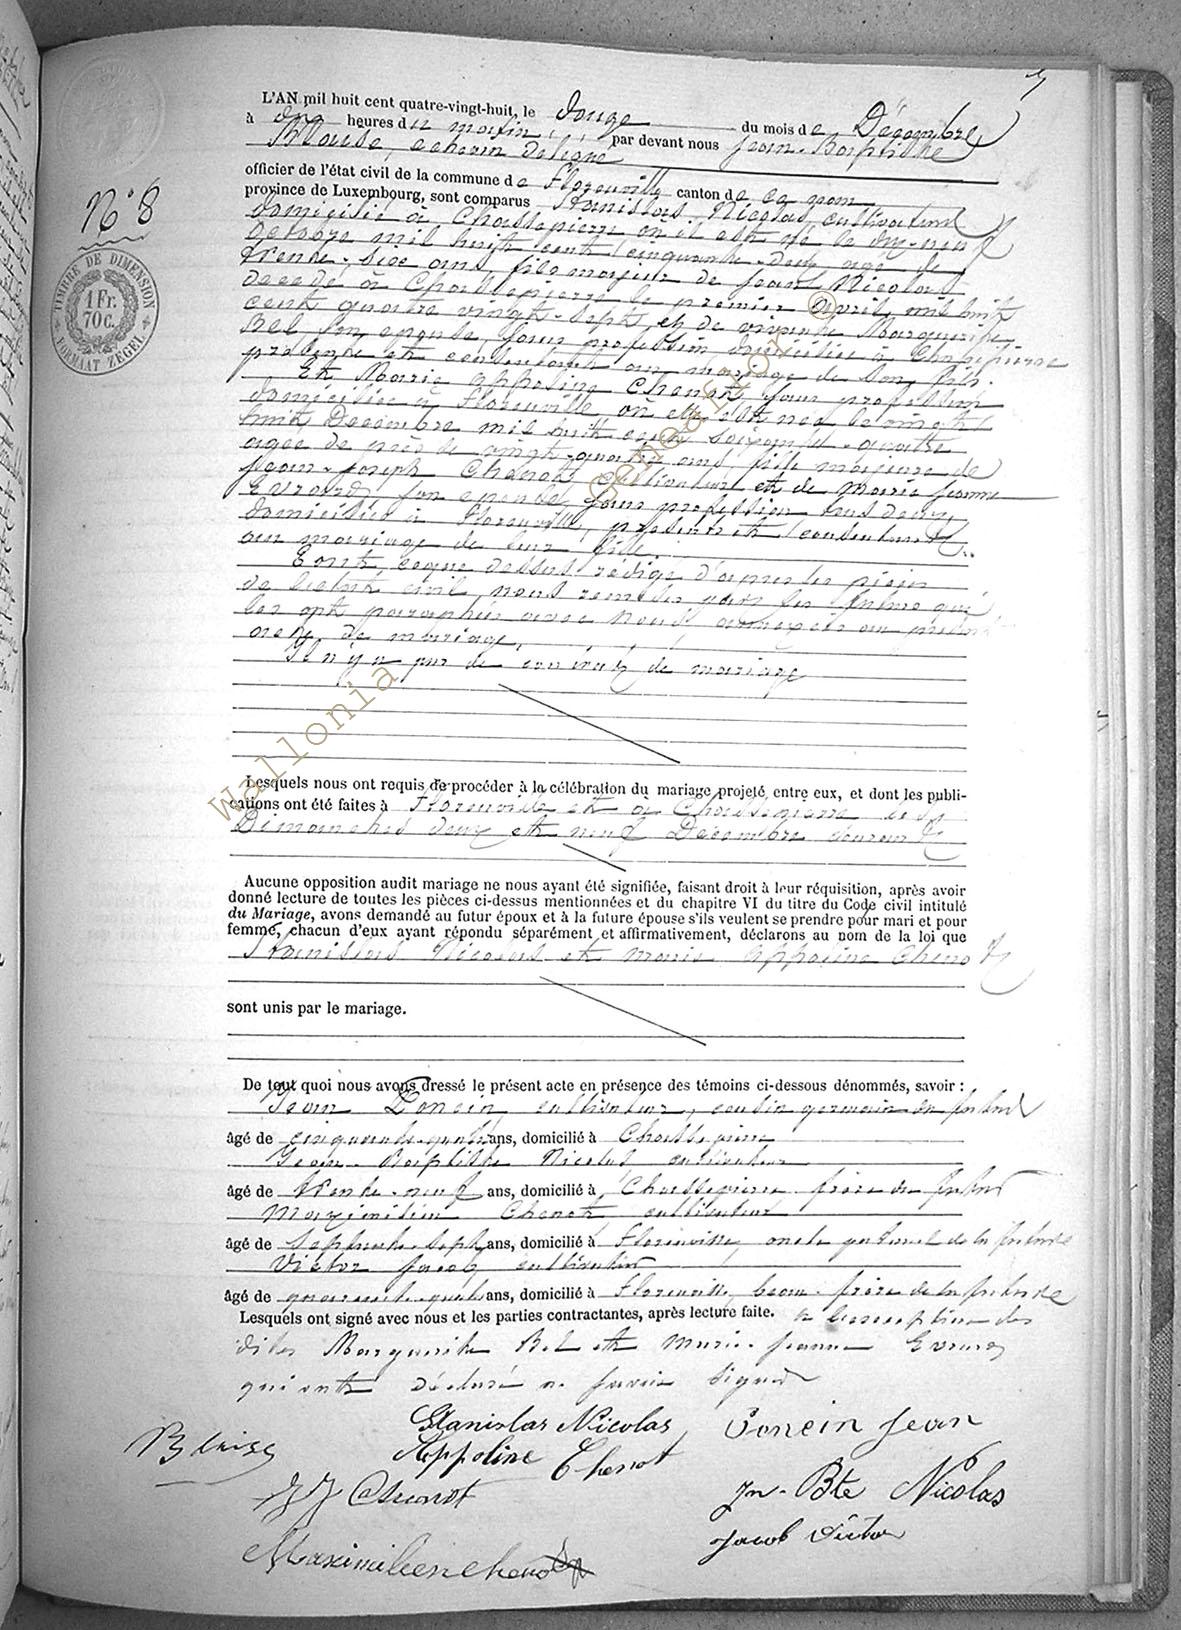 L'AN mil huit cent quatre-vingt-huit, le douze du mois de Décembre
à dix heures du matin par devant nous Jean-Baptiste
Blaise, échevin délégué
officier de l'état civil de la commune de Florenville canton de ce nom
province de Luxembourg, sont comparus Stanislas Nicolas, cultivateur
N° 8
TIMBRE DE DIMENSION
1 Fr. 70 c.
FORMAAT ZEGEL
domicilié à Chassepierre où il est né le dix-neuf
octobre mil huit cent cinquante-deux âgé de
trente-six ans, fils majeur de Jean Nicolas
décédé à Chassepierre le premier avril mil huit
cent quatre vingt-sept et de vivante Marguerite
Bel son épouse, sans profession domiciliée à Chassepierre
présente et consentant au mariage de son fils.
Et Marie Appoline Chenot, sans profession
domiciliée à Florenville, où elle est née le vingt
huit Décembre mil huit cent soixante-quatre
âgée de près de vingt-quatre ans, fille majeure de
Jean-Joseph Chenot cultivateur et de Marie Jeanne
Evrard, son épouse, sans profession tous deux
domiciliés à Florenville, présents et consentants
au mariage de leur fille.
Tout ce que dessus rédigé d'après les pièces
de l'état civil nous remises par les futurs qui
les ont paraphées avec nous annexées au présent
acte de mariage.
Il n'y a pas de contrat de mariage
Lesquels nous ont requis de procéder à la célébration du mariage projeté entre eux, et dont les publi-
cations ont été faites à Florenville et à Chassepierre les
Dimanches deux et neuf Décembre courant
Aucune opposition audit mariage ne nous ayant été signifiée, faisant droit à leur réquisition, après avoir
donné lecture de toutes les pièces ci-dessus mentionnées et du chapitre VI du titre du Code civil intitulé
du Mariage, avons demandé au futur époux et à la future épouse s'ils veulent se prendre pour mari et pour
femme, chacun d'eux ayant répondu séparément et affirmativement, déclarons au nom de la loi que
Stanislas Nicolas et Marie Appoline Chenot
sont unis par le mariage.
De tout quoi nous avons dressé le présent acte en présence des témoins ci-dessous dénommés, savoir :
Jean Poncin, cultivateur, cousin germain du futur
âgé de cinquante-quatre ans, domicilié à Chassepierre
Jean-Baptiste Nicolas cultivateur
âgé de trente-neuf ans, domicilié à Chassepierre frère du futur
Maximilien Chenot cultivateur
âgé de septante-sept ans, domicilié à Florenville, oncle paternel de la future
Victor Jacob, cultivateur
âgé de quarante-quatre ans, domicilié à Florenville, beau-frère de la future
Lesquels ont signé avec nous et les parties contractantes, après lecture faite. à l'exception des
dites Marguerite Bel et Marie-Jeanne Evrard
qui ont déclaré ne savoir signer
Stanislas Nicolas Poncin Jean
Blaise Appoline Chenot
JJ Chenot Jn-Bte Nicolas
Jacob Victor
Maximilien Chenot
wallonia Geneafior ©